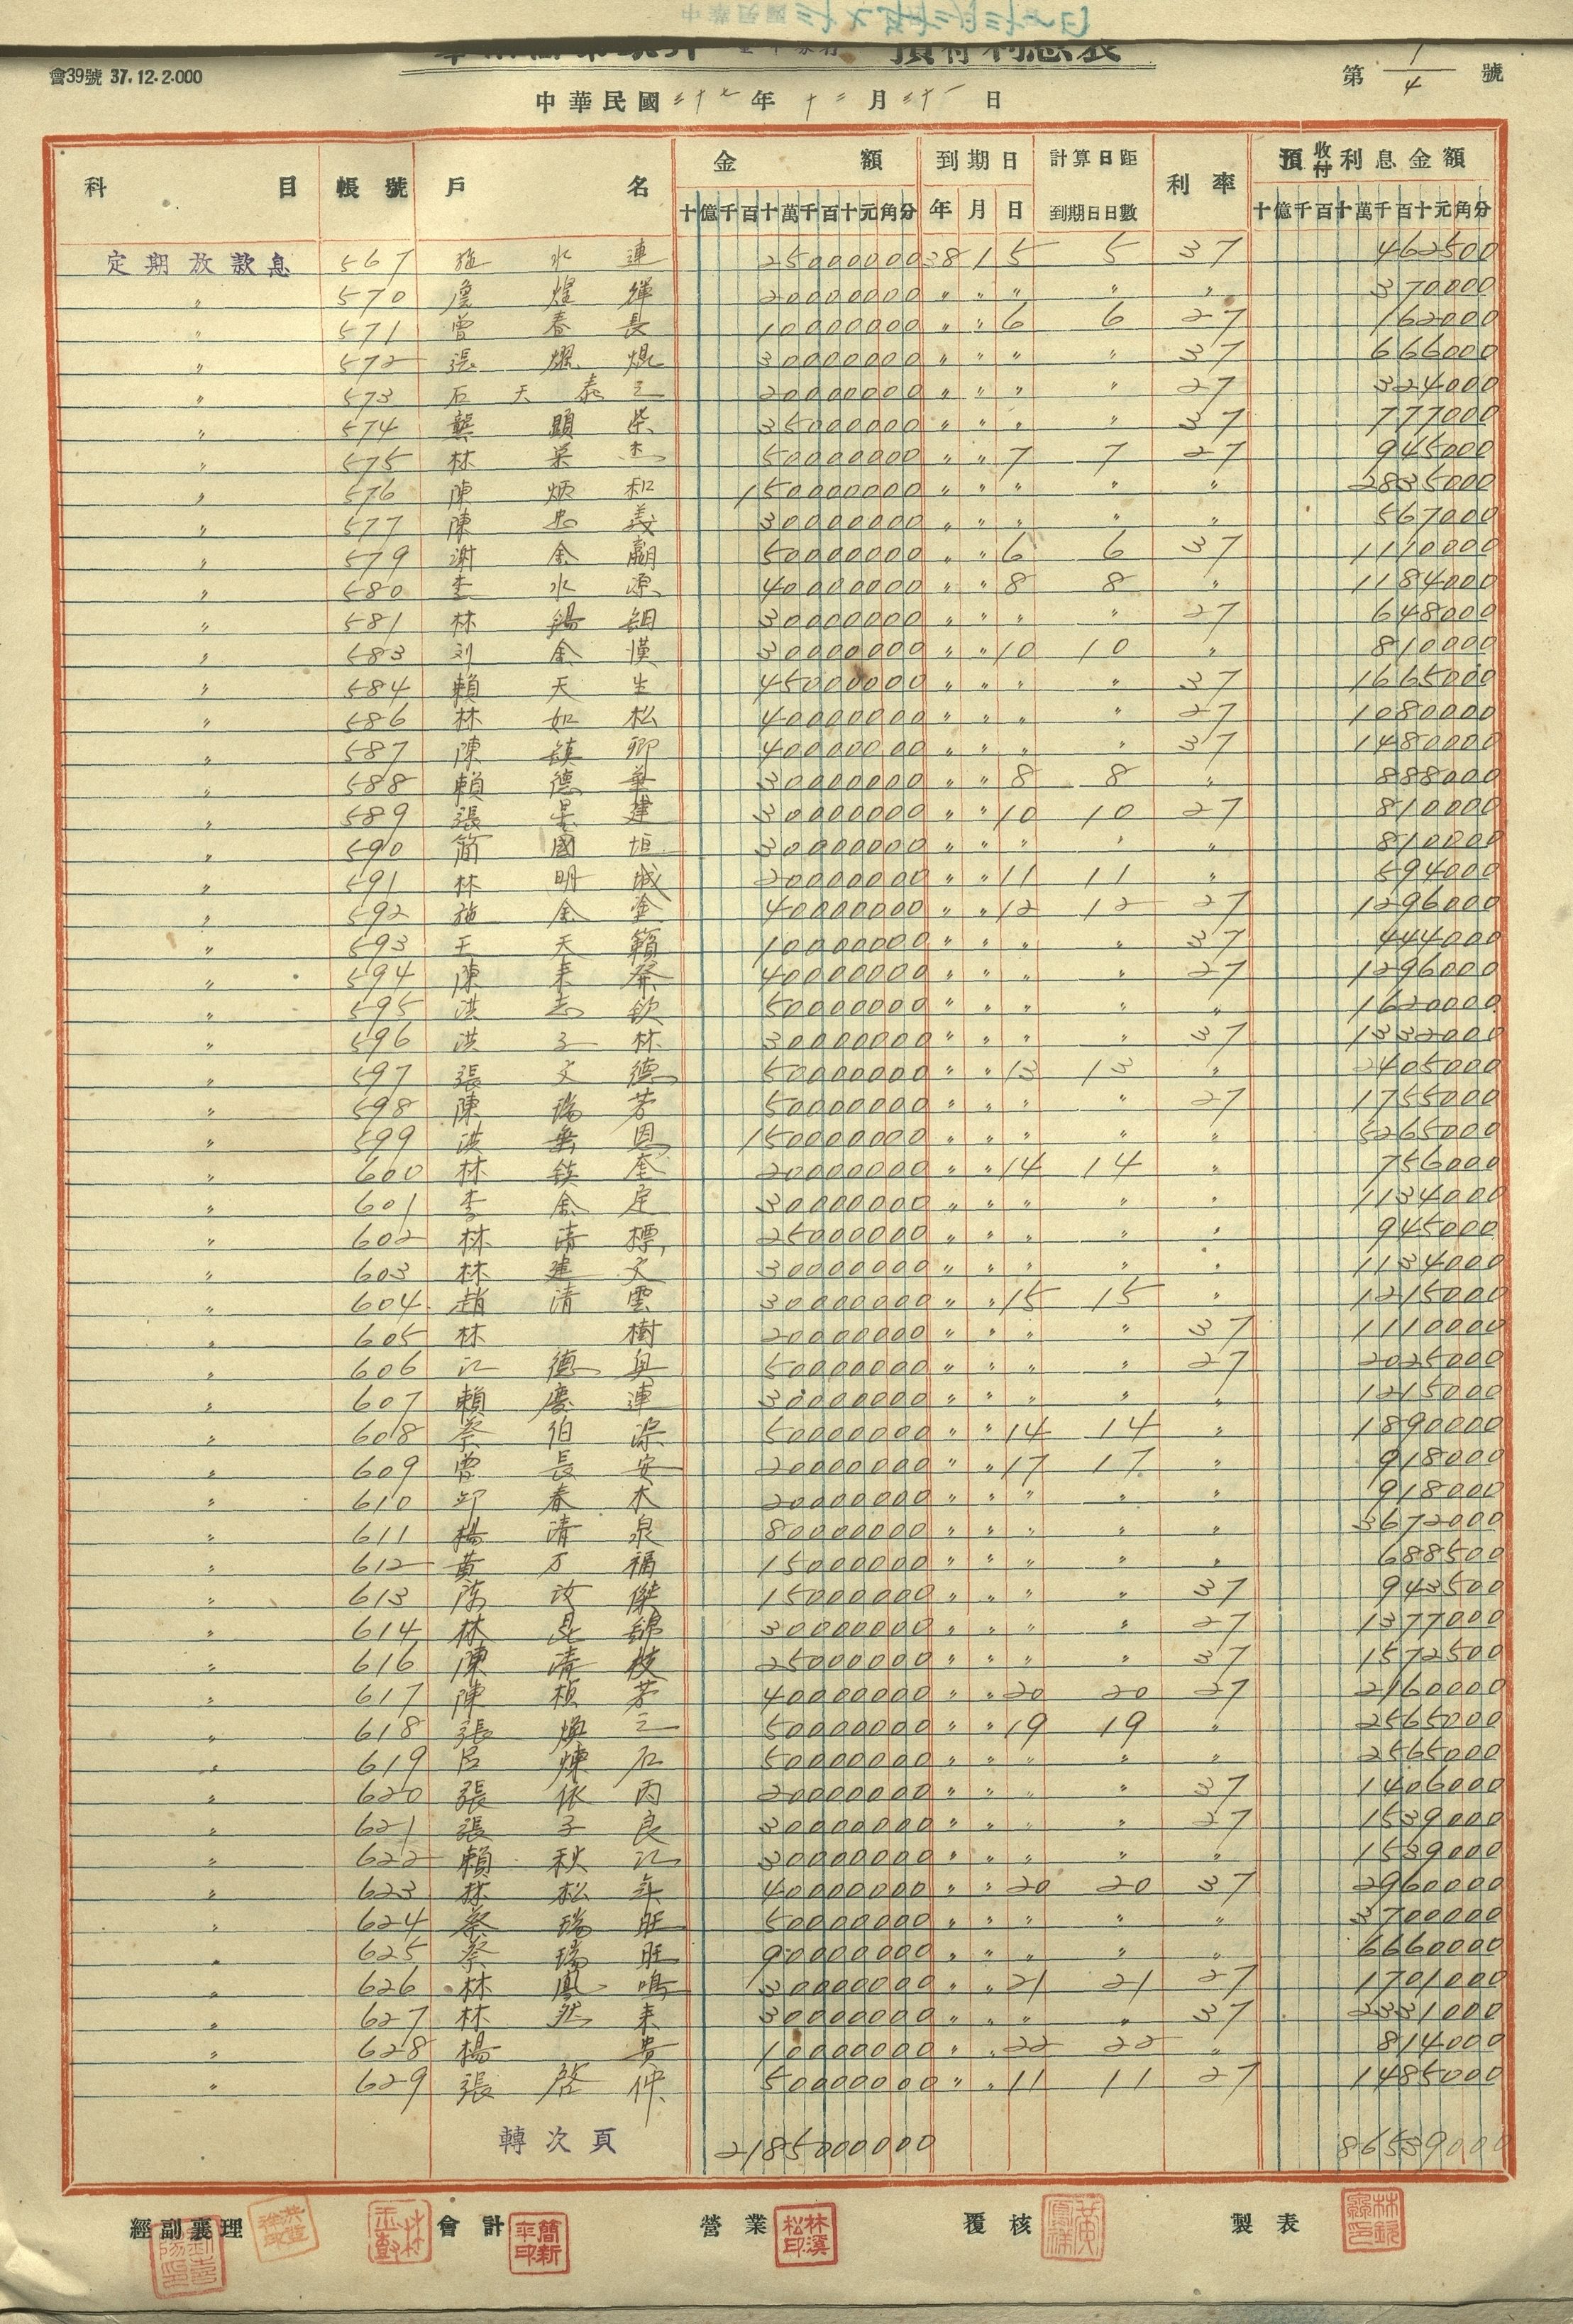 中華民國三十七年十二月三十一日
會39號 37.12-2.000
第 1/4 號
中華民國三十七年十二月三十一日
科目 帳號 戶名 金額 到期日 計算日距到期日日數 利率 預收付利息金額
十億千百十萬千百十元角分 年 月 日 十億千百十萬千百十元角分
定期放款息 567 施水連 25000000 38 1 5 5 37 462500
〃 570 詹煌輝 20000000 〃 〃 〃 〃 〃 370000
〃 571 曾春長 10000000 〃 〃 6 6 27 162000
〃 572 張燿焜 30000000 〃 〃 〃 〃 37 666000
〃 573 石天泰 20000000 〃 〃 〃 〃 27 324000
〃 574 龔顯榮 35000000 〃 〃 〃 〃 37 777000
〃 575 林 50000000 〃 〃 7 7 27 945000
〃 576 陳炳和 150000000 〃 〃 〃 〃 〃 2835000
〃 577 陳忠義 30000000 〃 〃 〃 〃 〃 567000
〃 579 謝金 50000000 〃 〃 6 6 37 1110000
〃 580 李水源 40000000 〃 〃 8 8 〃 1184000
〃 581 林錫鈿 30000000 〃 〃 〃 〃 27 648000
〃 583 刘金漢 30000000 〃 〃 10 10 〃 810000
〃 584 賴天生 45000000 〃 〃 〃 〃 37 1665000
〃 586 林如松 40000000 〃 〃 〃 〃 27 1080000
〃 587 陳鎮卿 40000000 〃 〃 〃 〃 37 1480000
〃 588 賴德華 30000000 〃 〃 8 8 〃 888000
〃 589 張建 30000000 〃 〃 10 10 27 810000
〃 590 簡國垣 30000000 〃 〃 〃 〃 〃 810000
〃 591 林明 20000000 〃 〃 11 11 〃 594000
〃 592 施金 40000000 〃 〃 12 12 27 1296000
〃 593 王天籟 10000000 〃 〃 〃 〃 37 444000
〃 594 陳來 40000000 〃 〃 〃 〃 27 1296000
〃 595 洪志欽 50000000 〃 〃 〃 〃 〃 1620000
〃 596 洪子林 30000000 〃 〃 〃 〃 37 1332000
〃 597 張文德 50000000 〃 〃 13 13 〃 2405000
〃 598 陳瑞芳 50000000 〃 〃 〃 〃 27 1755000
〃 599 洪垂恩 150000000 〃 〃 〃 〃 〃 5265000
〃 600 林鎮奎 20000000 〃 〃 14 14 〃 756000
〃 601 李金定 30000000 〃 〃 〃 〃 〃 1134000
〃 602 林清標 25000000 〃 〃 〃 〃 〃 945000
〃 603 林建文 30000000 〃 〃 〃 〃 〃 1134000
〃 604 趙清雲 30000000 〃 〃 15 15 〃 1215000
〃 605 林樹 20000000 〃 〃 〃 〃 37 1110000
〃 606 江德 50000000 〃 〃 〃 〃 27 2025000
〃 607 賴慶連 30000000 〃 〃 〃 〃 〃 1215000
〃 608 蔡伯 50000000 〃 〃 14 14 〃 1890000
〃 609 曾長安 20000000 〃 〃 17 17 〃 918000
〃 610 春木 20000000 〃 〃 〃 〃 〃 918000
〃 611 楊清泉 80000000 〃 〃 〃 〃 〃 3672000
〃 612 黃万福 15000000 〃 〃 〃 〃 〃 688500
〃 613 陈改傑 15000000 〃 〃 〃 〃 37 943500
〃 614 林昆錦 30000000 〃 〃 〃 〃 27 1377000
〃 616 陳清枝 25000000 〃 〃 〃 〃 37 1572500
〃 617 陳楨芳 40000000 〃 〃 20 20 27 2160000
〃 618 張煥三 50000000 〃 〃 19 19 〃 2565000
〃 619 呂煉石 50000000 〃 〃 〃 〃 〃 2565000
〃 620 張依丙 20000000 〃 〃 〃 〃 37 1406000
〃 621 張子良 30000000 〃 〃 〃 〃 27 1539000
〃 622 賴秋江 30000000 〃 〃 〃 〃 〃 1539000
〃 623 林松年 40000000 〃 〃 20 20 37 2960000
〃 624 蔡瑞旺 50000000 〃 〃 〃 〃 〃 3700000
〃 625 蔡瑞旺 90000000 〃 〃 〃 〃 〃 6660000
〃 626 林鳳鳴 30000000 〃 〃 21 21 27 1701000
〃 627 林然來 30000000 〃 〃 〃 〃 37 2331000
〃 628 楊貴 10000000 〃 〃 22 22 〃 814000
〃 629 張啓仲 50000000 〃 〃 11 11 27 1485000
轉次頁 2185000000 86539000
經副襄理 會計 營業 覆核 製表
簡新平印 林溪松印